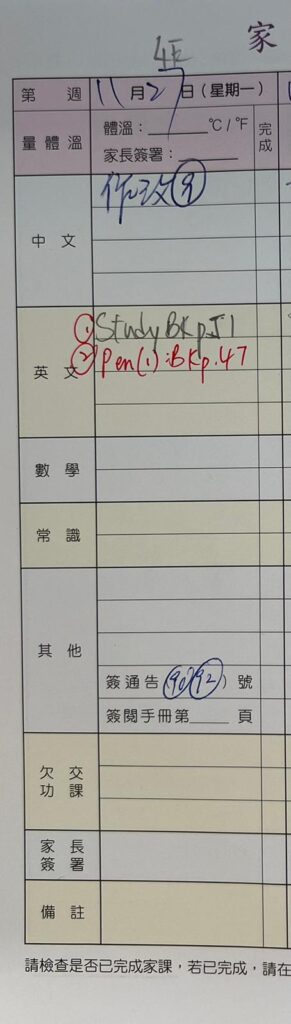 4E
家
第 週 11月27日(星期一)
量體溫 體溫:______℃/℉ 完成
家長簽署:______
中文 作改⑨
英文 ① Study BK p.51
② Pen(1):BK p.47
數學
常識
其他
簽通告(90 92)號
簽閱手冊第____頁
欠交功課
家長簽署
備註
請檢查是否已完成家課,若已完成,請在